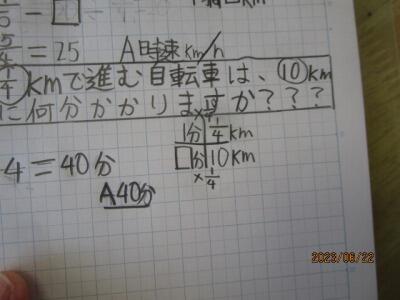 1/5 - □
5/4 = 25 A時速 km/h
1/4 kmで進む自転車は、10km
に何分かかりますか???
1分 1/4 km
□分 10km
× 1/4
4 = 40分
A40分
2023/06/22